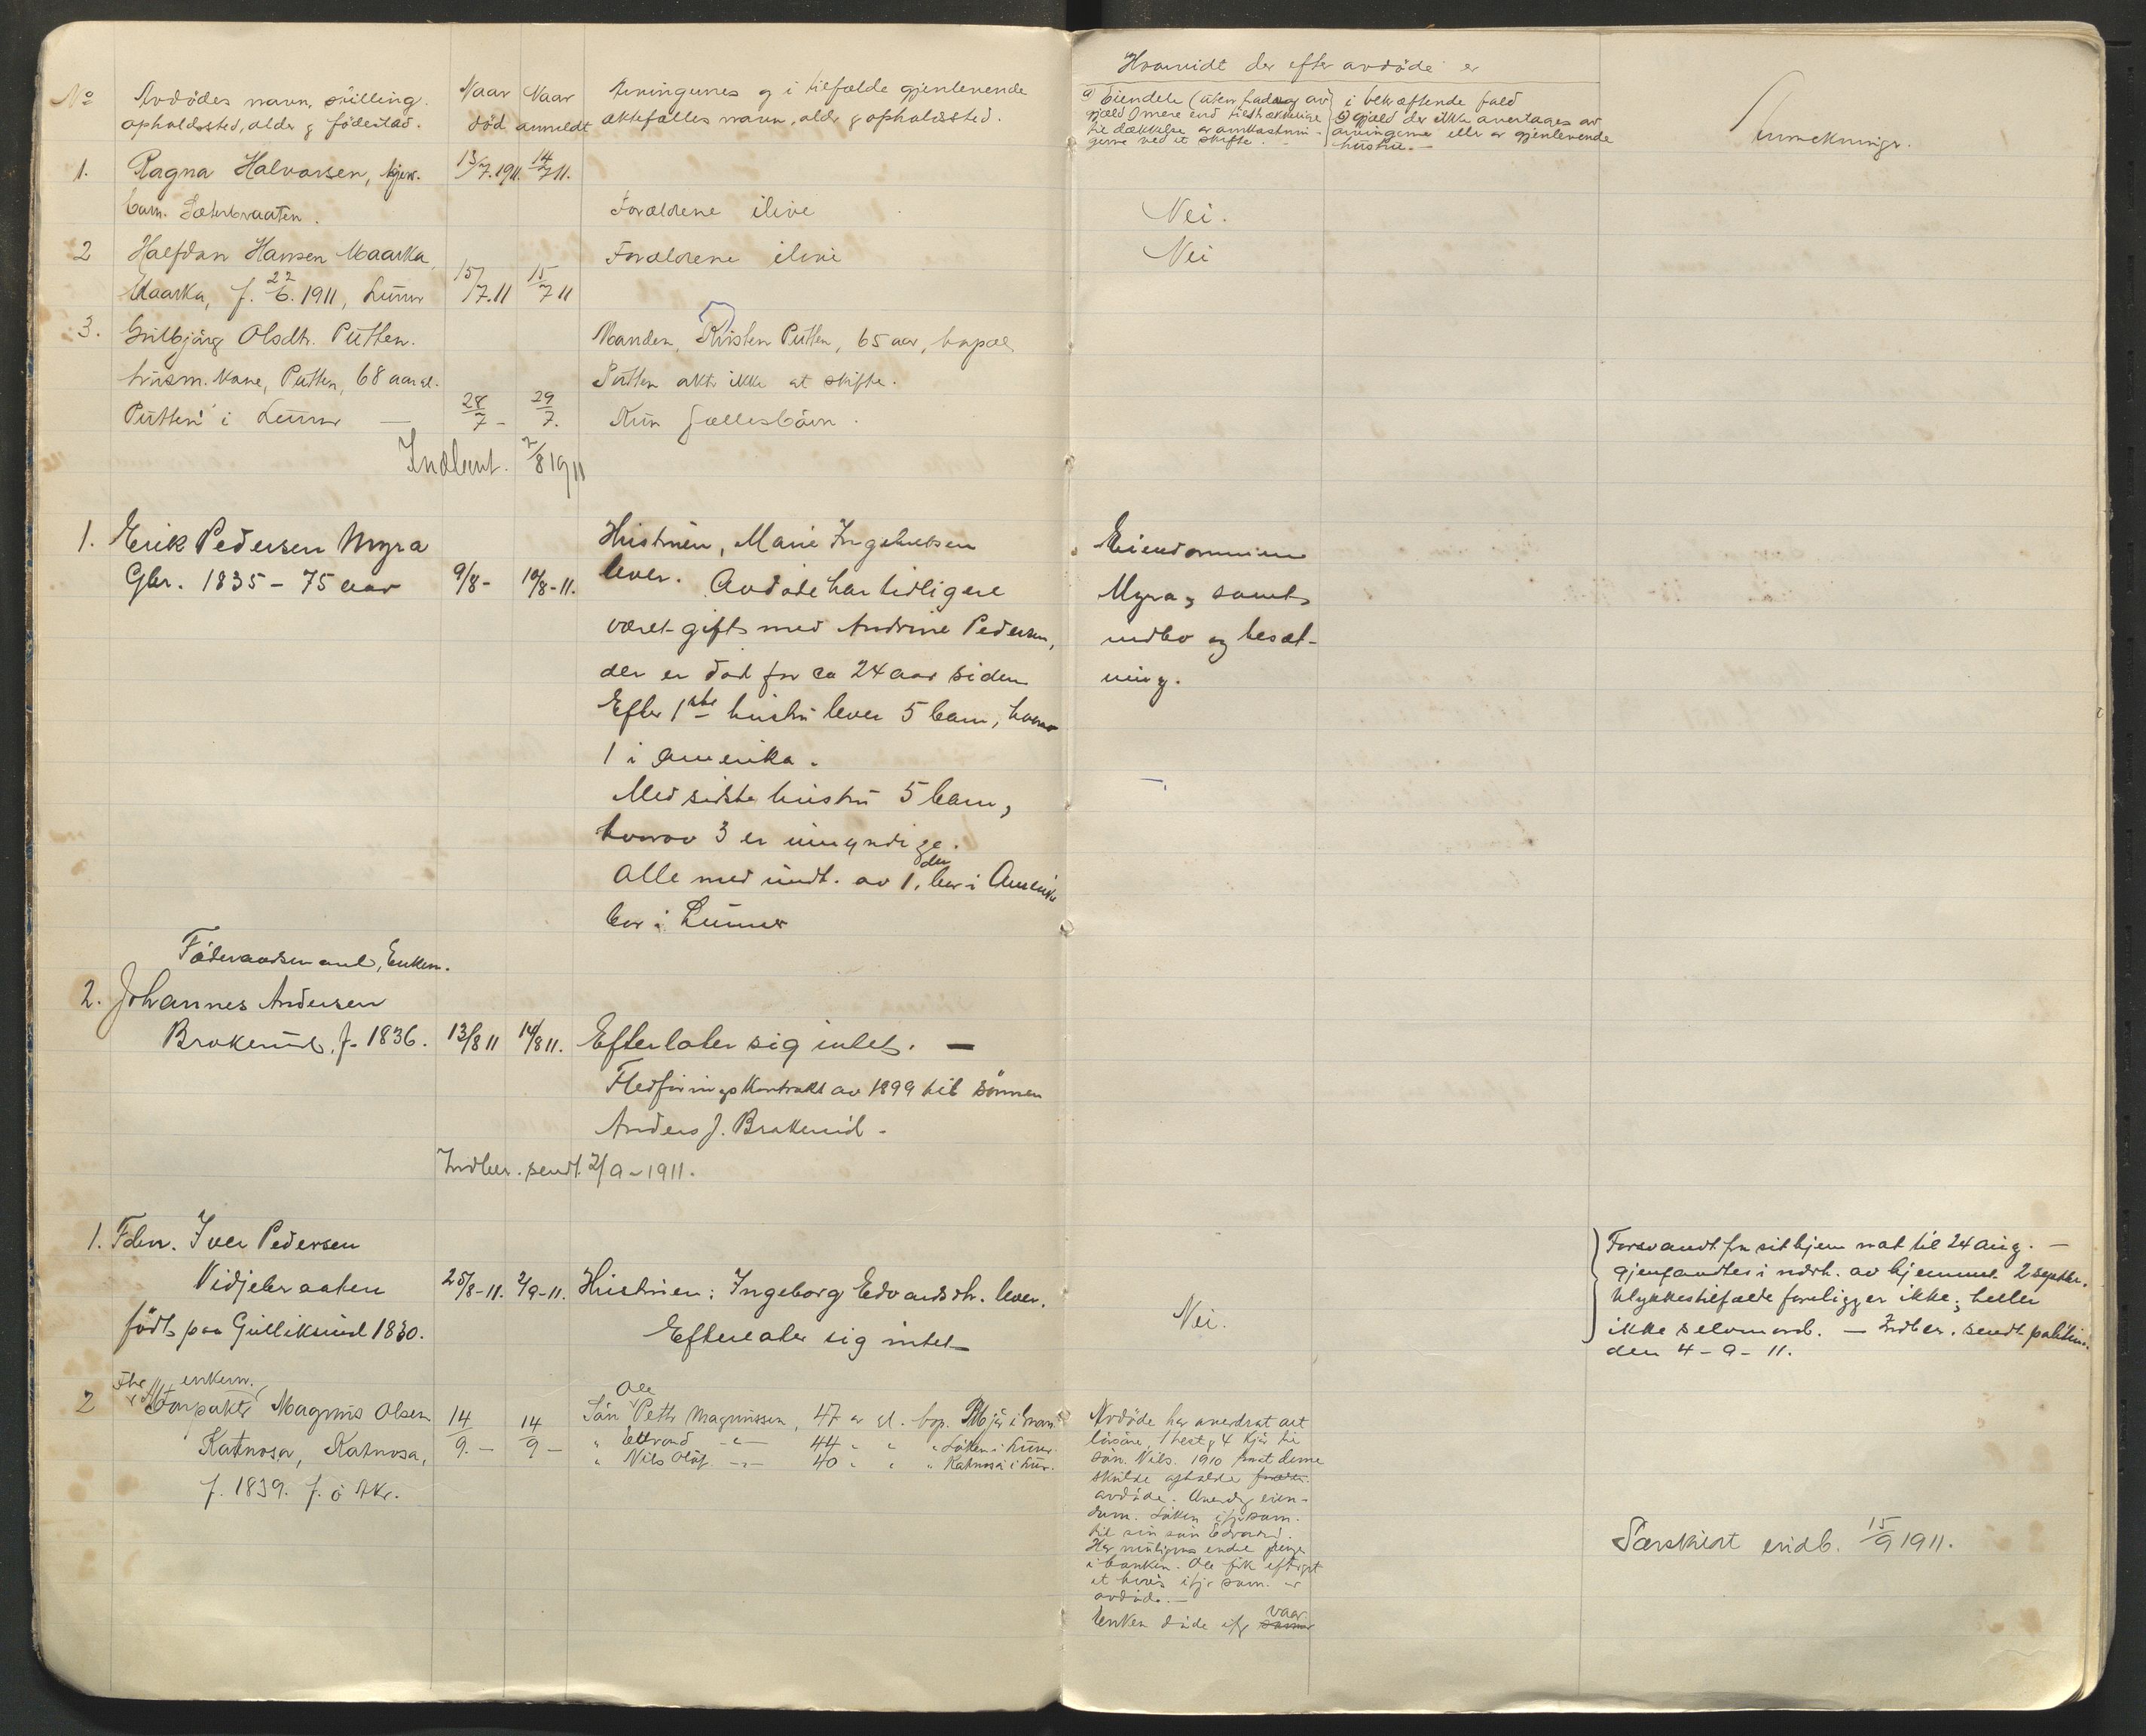 No
Avdödes navn, stilling
opholdssted, alder & födested.
Naar
död
Naar
anmeldt
Arvingernes og i tilfælde gjenlevende
ektefælles navn, alder & opholdssted.
Hvorvidt der efter avdöde er
a) Eiendele (uten fradrag av
gjæld) mere end tilstrækkelige
til dækkelse av omkostnin-
gerne ved et skifte.
i bekræftende fald
b) gjæld der ikke overtages av
arvingerne eller av gjenlevende
hustru. —
Anmerkninger.
1. Ragna Halvorsen,
barn. Sæterbraaten.
13/7.1911. 14/7 11.
Forældrene ilive
Nei.
2 Halfdan Hansen Maarka,
Maarka, f. 22/6. 1911, Lunner
15/7.11 15/7 11
Forældrene ilive
Nei
3. Gulbjörg Olsdtr. Putten.
husm. kone, Putten, 68 aar gl.
Putten i Lunner —
28/7 - 29/7.
Manden, Kristen Putten, 65 aar, bopæl
Putten akter ikke at skifte.
Kun fællesbörn.
Indbert. 2/8 1911
1. Erik Pedersen Myra
Gbr. 1835 - 75 aar
9/8 - 10/8-11.
Hustruen, Marie Ingebretsen
lever. Avdöde har tidligere
været gift med Andrine Pedersen,
der er död for ca 24 aar siden
Efter 1ste hustru lever 5 barn, hvorav
1 i Amerika.
Med sidste hustru 5 barn,
hvorav 3 er umyndige.
Alle med undt. av 1, der bor i Amerika
bor i Lunner
Eiendommen
Myra, samt
indbo og besæt-
ning.
Föderaadsmand, Enkem.
2. Johannes Andersen
Brakerud, f. 1836.
13/8 11 14/8 11.
Efterlater sig intet. —
Fledföringskontrakt av 1899 til sönnen
Anders J. Brakerud -
Indber. sendt 2/9 - 1911.
1. Fdrm. Iver Pedersen
Vidjebraaten
födt paa Gulliksrud 1830.
25/8-11. 2/9-11.
Hustruen: Ingeborg Edvardsdtr. lever.
Efterlater sig intet
Nei.
Forsvandt fra sit hjem nat til 24 aug. —
Gjenfandtes i nærh. av hjemmet 2 septbr.
Ulykkestilfælde foreligger ikke; heller
ikke selvmord. — Indber. sendt politim.
den 4 - 9 - 11.
enkem.
2 Forpakter Magnus Olsen
Katnosa, Katnosa,
f. 1839. f. ö Aker.
14/9. - 14/9 -
Ole
Sön Petter Magnussen, 47 aar gl. bop. i Gran.
" Edvard -"- 44 " " " Löken i Lunner.
" Nils Olaf -"- 40 " " " Katnosa i Lun.
Avdöde har overdrat alt
lösöre, 1 hest & 4 kjör til
sön. Nils. 1910 mot denne
skulde opholde
avdöde. Overdrog eien-
dom. Löken ifjor som.
til sin sön Edvard.
Har muligens endel penge
i banken. Ole fik eftergit
et laan ifjor som. av
avdöde. —
Enken döde ifjor vaar
Særskilt indb. 15/9 1911.